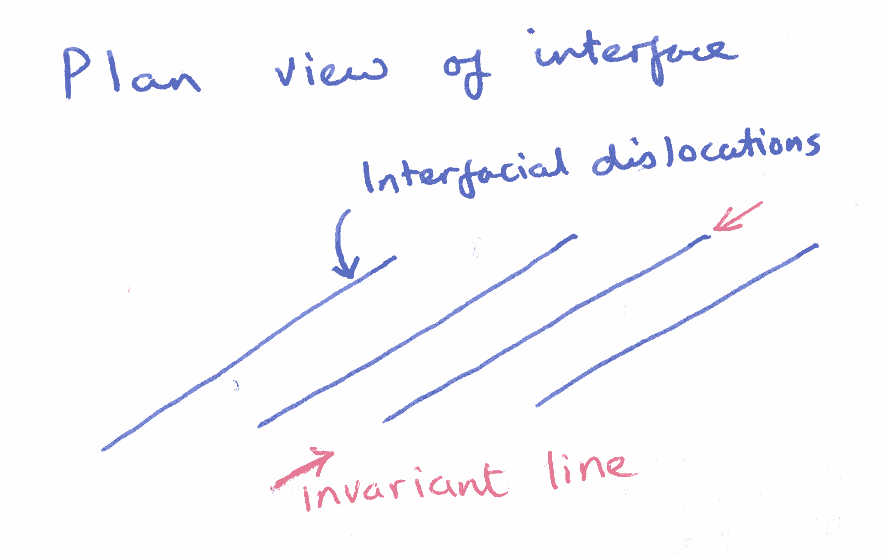 Plan view of interface
Interfacial dislocations
invariant line